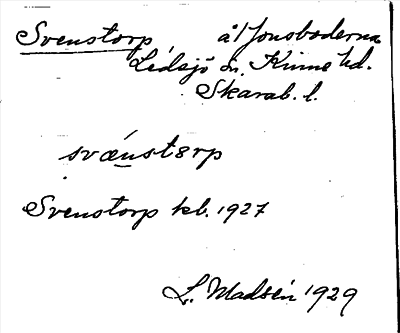 Svenstorp å/Jonsboderna
Ledsjö sn. Kinne hd.
Skarab. l.
svænstərp
Svenstorp kb. 1927
L. Madsén 1929